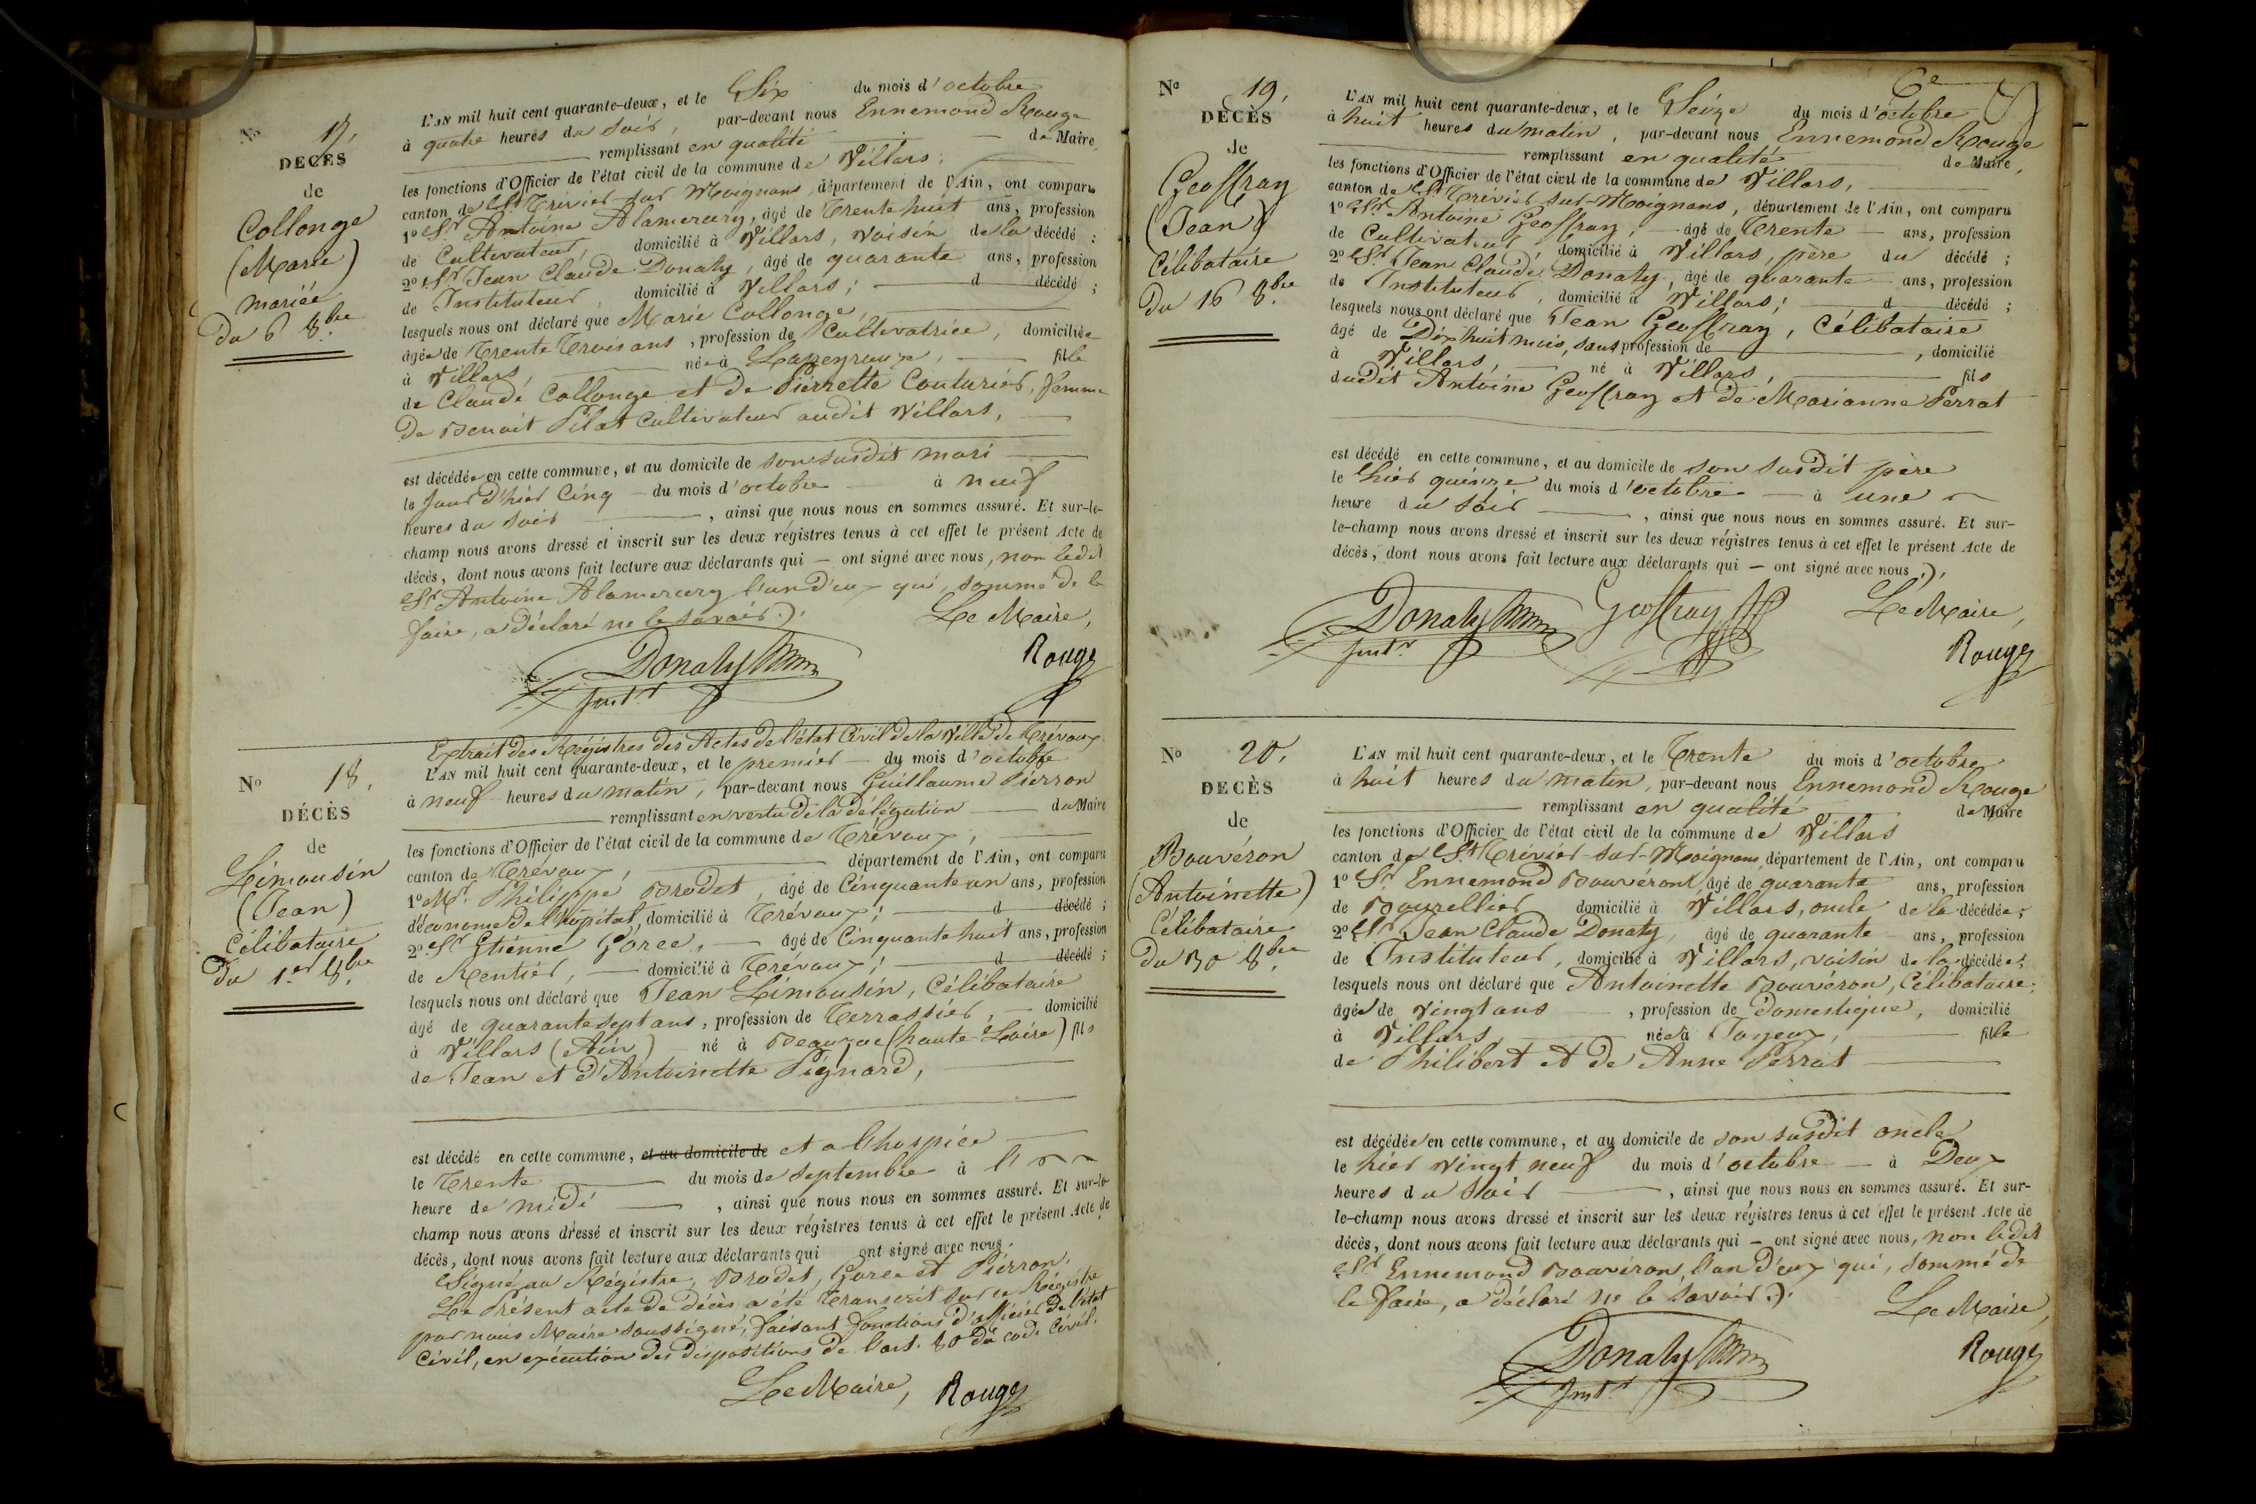 No 17.
DECÈS
de
Collonge
(Marie)
mariée
du 6 8.bre
L'AN mil huit cent quarante-deux, et le Six du mois d'octobre
à quatre heures du soir, par-devant nous Ennemond Rouge
remplissant en qualité de Maire,
les fonctions d'Officier de l'état civil de la commune de Villars,
canton de St Trivier-sur-Moignans, département de l'Ain, ont comparu
1o Sr Antoine Alamercery, âgé de Trente huit ans, profession
de Cultivateur, domicilié à Villars, voisin de la décédé ;
2o Sr Jean Claude Donaty, âgé de quarante ans, profession
de Instituteur, domicilié à Villars ; d décédé ;
lesquels nous ont déclaré que Marie Collonge,
âgée de Trente Trois ans, profession de Cultivatrice, domiciliée
à Villars, née à Lapeyrouse, fille
de Claude Collonge et de Pierrette Couturier, femme
de Benoit Pilat Cultivateur audit Villars,
est décédée en cette commune, et au domicile de son susdit mari
le jour d'hier Cinq du mois d'octobre à neuf
heures du soir, ainsi que nous nous en sommes assuré. Et sur-le-
champ nous avons dressé et inscrit sur les deux régistres tenus à cet effet le présent Acte de
décès, dont nous avons fait lecture aux déclarants qui — ont signé avec nous, non ledit
Sr Antoine Alamercery l'un d'eux qui, sommé de le
faire, a déclaré ne le savoir.
Le Maire,
Donaty
Instr
Rouge
No 18.
DÉCÈS
de
Limousin
(Jean)
Célibataire
du 1.er 8.bre
Extrait des Régistres des Actes de l'état Civil de la Ville de Trévoux
L'AN mil huit cent quarante-deux, et le premier du mois d'octobre
à neuf heures du matin, par-devant nous Guillaume Pierron
remplissant en vertu de la délégation du Maire
les fonctions d'Officier de l'état civil de la commune de Trévoux,
canton de Trévoux, département de l'Ain, ont comparu
1o Mr. Philippe Brodet, âgé de Cinquante un ans, profession
d'économe de l'hôpital, domicilié à Trévoux ; d décédé ;
2o Sr Etienne Gorce, âgé de Cinquante huit ans, profession
de Rentier, domicilié à Trévoux ; d décédé ;
lesquels nous ont déclaré que Jean Limousin, Célibataire
âgé de quarante sept ans, profession de Terrassier, domicilié
à Villars (Ain) né à Beauzac (haute Loire) fils
de Jean et d'Antoinette Pignard,
est décédé en cette commune, et au domicile de et a l'hospice
le Trente du mois de septembre à l'
heure de midi, ainsi que nous nous en sommes assuré. Et sur-le-
champ nous avons dressé et inscrit sur les deux régistres tenus à cet effet le présent Acte de
décès, dont nous avons fait lecture aux déclarants qui ont signé avec nous.
Signé au Régistre, Brodet, Gorce et Pierron.
Le Présent acte de décès a été Transcrit sur ce Régistre
par nous Maire soussigné, faisant fonctions d'officier de l'état
Civil, en exécution des dispositions de l'art. 80 du code Civil.
Le Maire, Rouge
No 19.
DÉCÈS
de
Geoffray
(Jean)
Célibataire
Du 16 8.bre
6e
L'AN mil huit cent quarante-deux, et le Seize du mois d'octobre
à huit heures du matin, par-devant nous Ennemond Rouge
remplissant en qualité de Maire,
les fonctions d'Officier de l'état civil de la commune de Villars,
canton de St Trivier-sur-Moignans, département de l'Ain, ont comparu
1o Sr Antoine Geoffray, âgé de Trente ans, profession
de Cultivateur, domicilié à Villars, père du décédé ;
2o Sr Jean Claude Donaty, âgé de quarante ans, profession
de Instituteur, domicilié à Villars ; d décédé ;
lesquels nous ont déclaré que Jean Geoffray, Célibataire
âgé de Dix huit mois, sans profession de, domicilié
à Villars, né à Villars, fils
dudit Antoine Geoffray et de Marianne Perrat
est décédé en cette commune, et au domicile de son susdit père
le hier quinze du mois d'octobre à une
heure du soir, ainsi que nous nous en sommes assuré. Et sur-
le-champ nous avons dressé et inscrit sur les deux régistres tenus à cet effet le présent Acte de
décès, dont nous avons fait lecture aux déclarants qui — ont signé avec nous.
Donaty Geoffray Le Maire,
Instr
Rouge
No 20.
DECÈS
de
Bouvéron
(Antoinette)
Célibataire
Du 30 8.bre
L'AN mil huit cent quarante-deux, et le Trente du mois d'octobre
à huit heures du matin, par-devant nous Ennemond Rouge
remplissant en qualité de Maire
les fonctions d'Officier de l'état civil de la commune de Villars
canton de St Trivier-sur-Moignans, département de l'Ain, ont comparu
1o Sr Ennemond Bouvéron, âgé de quarante ans, profession
de Bourrellier domicilié à Villars, oncle de la décédée ;
2o Sr Jean Claude Donaty, âgé de quarante ans, profession
de Instituteur, domicilié à Villars, voisin de la décédée ;
lesquels nous ont déclaré que Antoinette Bouvéron, Célibataire,
âgée de vingt ans, profession de Domestique, domicilié
à Villars, née à Joyeux, fille
de Philibert et de Anne Perrat
est décédée en cette commune, et au domicile de son susdit oncle
le hier vingt neuf du mois d'octobre à Deux
heures du soir, ainsi que nous nous en sommes assuré. Et sur-
le-champ nous avons dressé et inscrit sur les deux régistres tenus à cet effet le présent Acte de
décès, dont nous avons fait lecture aux déclarants qui — ont signé avec nous, non ledit
Sr Ennemond Bouvéron, l'un d'eux qui, sommé de
le faire, a déclaré ne le savoir.
Le Maire,
Donaty
Instr
Rouge